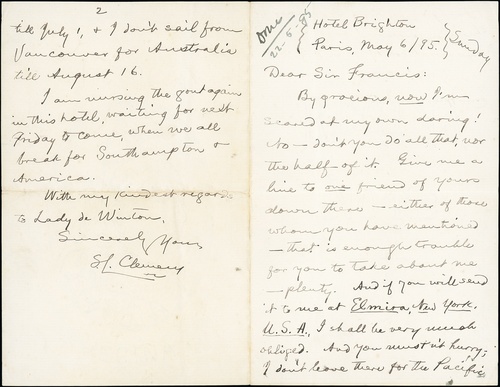 Hotel Brighton
Paris, May 6/95. Sunday
Dear Sir Francis:
By gracious, now I'm
scared at my own daring!
No — don't you do all that, nor
the half of it. Give me a
line to one friend of yours
down there — either of those
whom you have mentioned
— that is enough trouble
for you to take about me
— plenty. And if you will send
it to me at Elmira, New York,
U.S.A., I shall be very much
obliged. And you mustn't hurry;
I don't leave there for the Pacific
2
till July 1, & I don't sail from
Vancouver for Australia
till August 16.
I am nursing the gout again
in this hotel, waiting for next
Friday to come, when we all
break for Southampton &
America.
With my kindest regards
to Lady de Winton,
Sincerely Yours
SL. Clemens